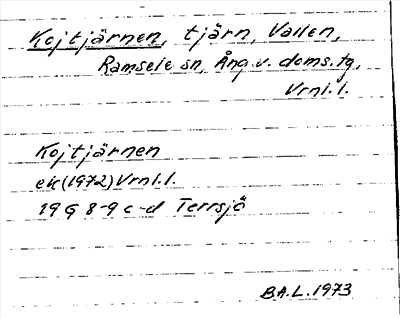 Kojtjärnen, tjärn, Vallen,
Ramsele sn, Ång. v. doms. tg,
Vrnl. l.
Kojtjärnen
ek (1972) Vrnl. l.
19 G 8-9 c-d Terrsjö
B.A.L. 1973